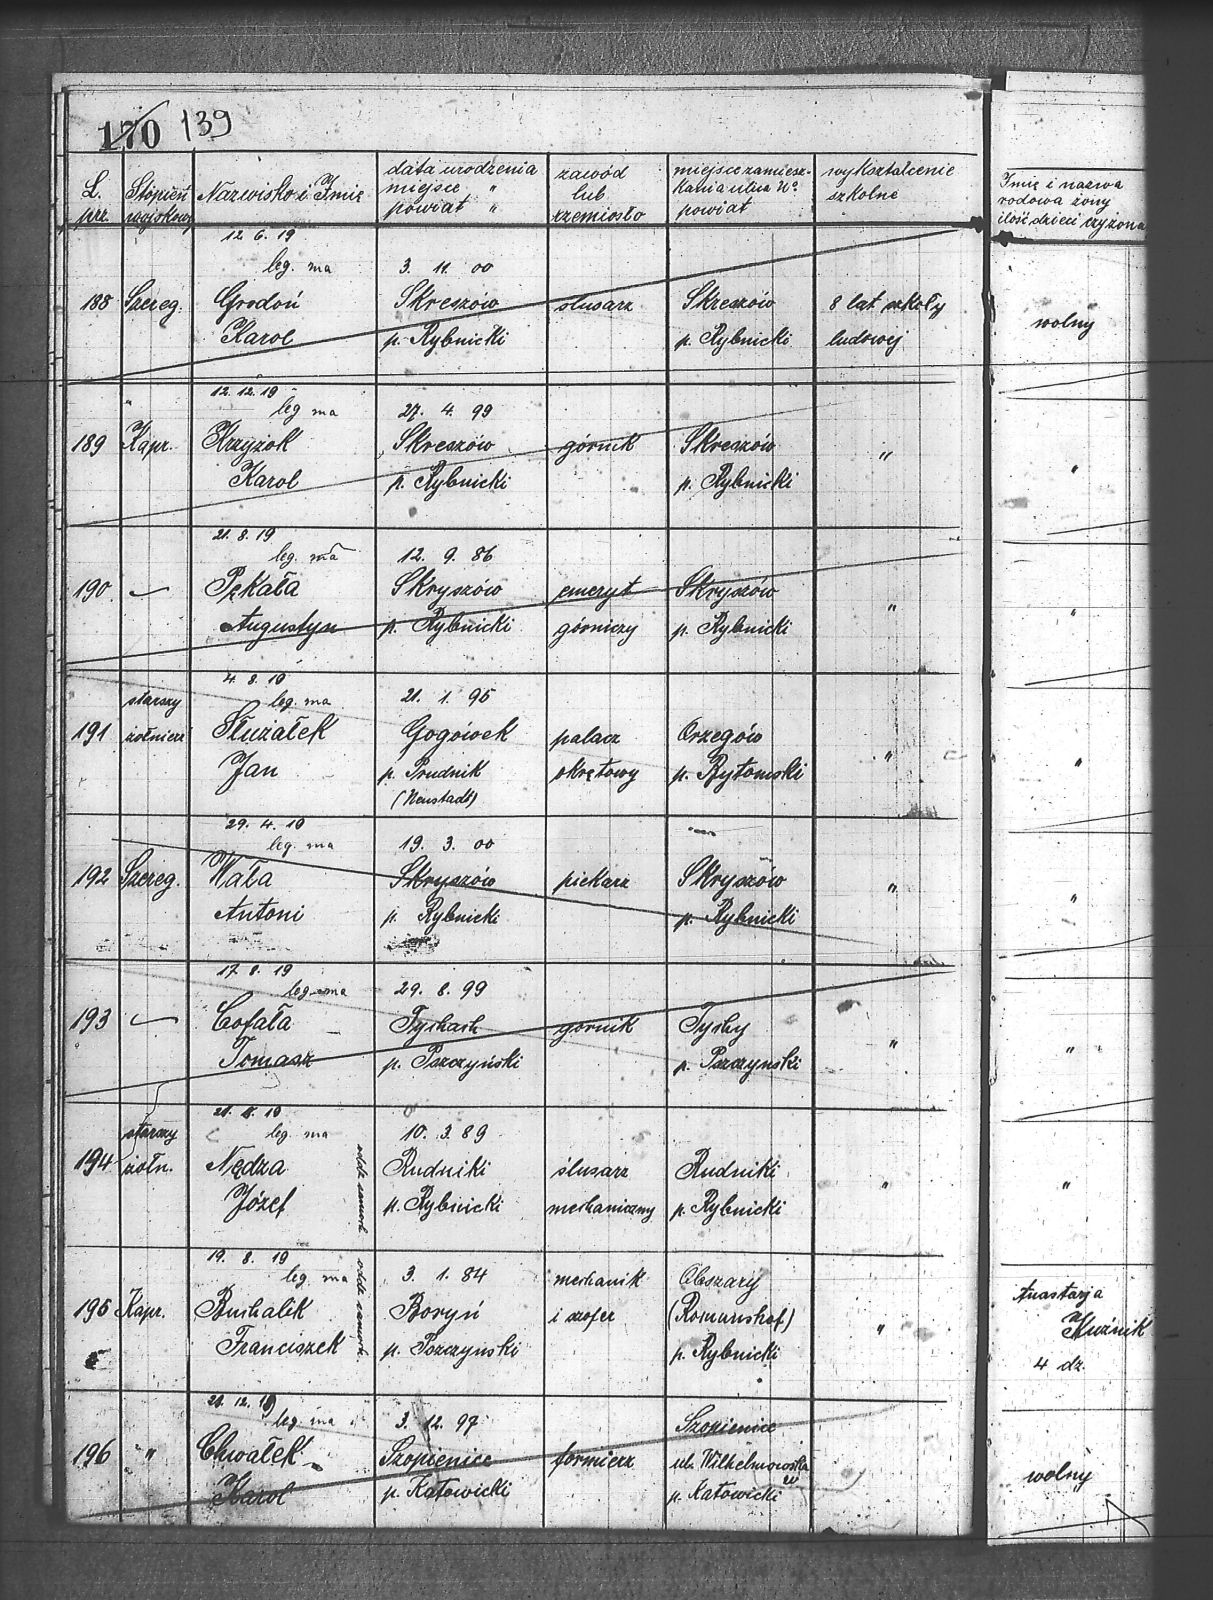 170 139
L. prz.
Stopień wojskowy
Nazwisko i Imię
data urodzenia
miejsce "
powiat "
zawód
lub
rzemiosło
miejsce zamiesz-
kania ulica No
powiat
wykształcenie
szkolne
Imię i nazwa
rodowa żony
ilość dzieci czyżona
12. 6. 19
leg. ma 3. 11. 00
188 Szereg. Grodoń Skreszów ślusarz Skrzeszów 8 lat szkoły wolny
Karol p. Rybnicki p. Rybnicki ludowej
12. 12. 19
leg ma 27. 4. 99
189 Kapr. Krzyżok Skreszów górnik Skreszów " "
Karol p. Rybnicki p. Rybnicki
21. 8. 19
leg. ma 12. 9. 86
190 Pękała Skryszów emeryt Skryszów " "
Augustyn p. Rybnicki górniczy p. Rybnicki
4. 8. 19
starszy leg. ma 21. 1. 95
191 żołnierz Służałek Gogówek palacz Orzegów " "
Jan p. Prudnik okrętowy p. Bytomski
(Neustadt)
29. 4. 19
leg. ma 19. 3. 00
192 Szereg. Wała Skryszów piekarz Skryszów " "
Antoni p. Rybnicki p. Rybnicki
17. 8. 19
leg. ma 29. 8. 99
193 Cofała Tychach górnik Tychy " "
Tomasz p. Pszczyński p. Pszczyński
starszy leg. ma 10. 3. 89
194 żołn. Nędza Rudniki ślusarz Rudniki " "
Józef p. Rybnicki mechaniczny p. Rybnicki
19. 8. 19
leg. ma 3. 1. 84 mechanik Obszary Anastazja
195 Kapr. Buchalik Boryń i szofer (Romanshof) " Kuźnik
Franciszek p. Pszczyński p. Rybnicki 4 dz.
21. 12. 19
leg. ma 3. 12. 97 Szopienice
196 " Chwałek Szopienice formierz ul. Wilhelmowska wolny
Karol p. Katowicki p. Katowicki